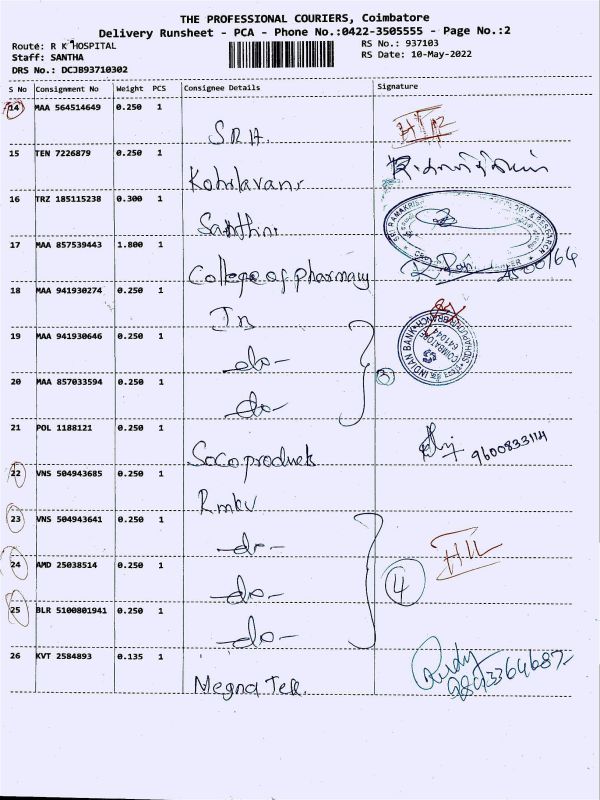 THE PROFESSIONAL COURIERS, Coimbatore
Delivery Runsheet - PCA - Phone No.:0422-3505555 - Page No.:2
Route: R K HOSPITAL
RS No.: 937103
Staff: SANTHA
RS Date: 10-May-2022
DRS No.: DCJB93710302
S No Consignment No Weight PCS Consignee Details Signature
14 MAA 564514649 0.250 1
15 TEN 7226879 0.250 1
16 TRZ 185115238 0.300 1
Santhini
17 MAA 857539443 1.800 1
College of pharmacy
18 MAA 941930274 0.250 1
INDIAN BANK
COIMBATORE
641044
19 MAA 941930646 0.250 1
-do-
20 MAA 857033594 0.250 1
3
-do-
21 POL 1188121 0.250 1
9600833114
Soco products
22 VNS 504943685 0.250 1
Rmkv
23 VNS 504943641 0.250 1
-do-
24 AMD 25038514 0.250 1
4
-do-
25 BLR 5100801941 0.250 1
-do-
26 KVT 2584893 0.135 1
Megna Tex.